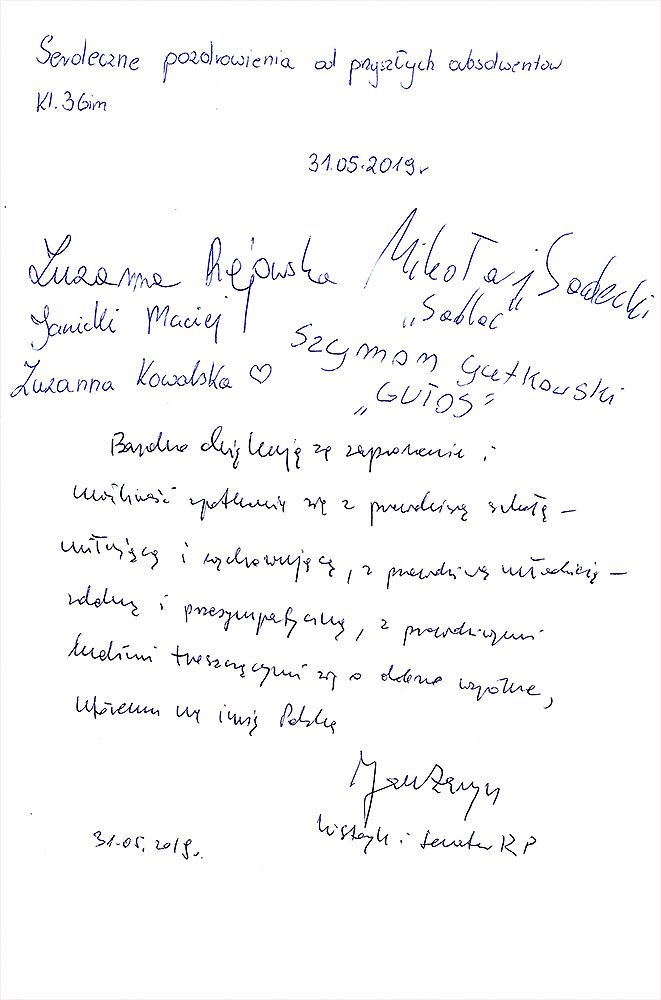 Serdeczne pozdrowienia od przyszłych absolwentów
Kl. 3 Gim
31.05.2019r
Zuzanna Rejowska Mikołaj Sadecki
Janicki Maciej "Sadlac"
Szymon Gutkowski
Zuzanna Kowalska ♡
"GUTOS"
Bardzo dziękuję za zaproszenie i
możliwość spotkania się z prawdziwą szkołą –
uczącą i wychowującą, z prawdziwą młodzieżą –
zdolną i przesympatyczną, z prawdziwymi
ludźmi troszczącymi się o dobro wspólne,
któremu na imię Polska
Jan Żaryn
historyk i senator RP
31.05.2019r.